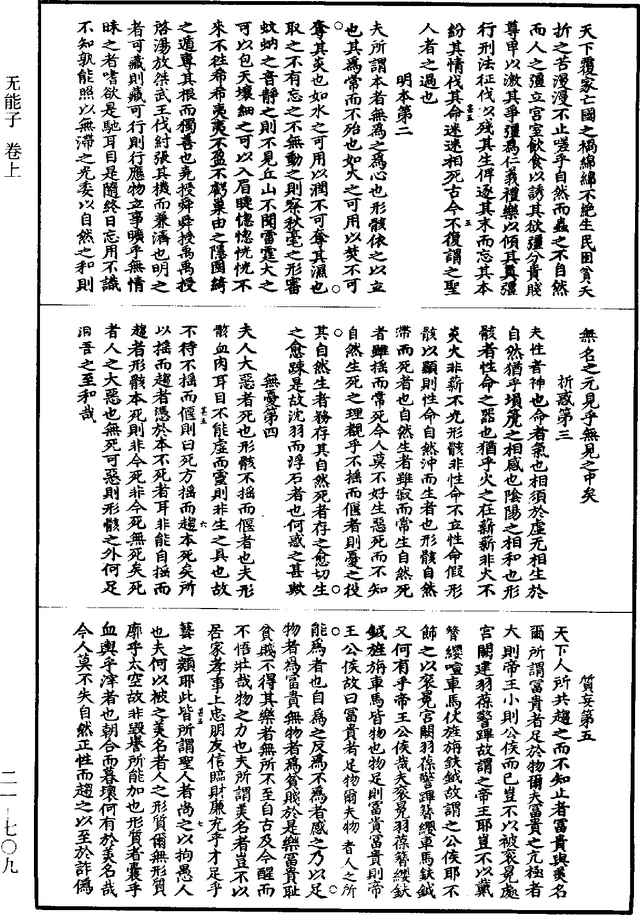 天下覆家亡國之禍綿綿不絕生民困貧夭
折之苦漫漫不止嗟乎自然而蟲之不自然
而人之彊立宮室飲食以誘其欲彊分貴賤
尊卑以激其爭彊為仁義禮樂以傾其真彊
行刑法征伐以殘其生俾逐其末而忘其本
紛其情伐其命迷迷相死古今不復謂之聖
人者之過也
明本第二
夫所謂本者無為之為心也形骸依之以立
也其為常而不殆也如火之可用以焚不可
奪其炎也如水之可用以潤不可奪其濕也
取之不有忘之不無動之則察秋毫之形審
蚊蚋之音靜之則不見丘山不聞雷霆大之
可以包天壤細之可以入眉睫惚惚恍恍不
來不往希希夷夷不盈不虧巢由之隱園綺
之遁專其根而獨善也堯授舜舜授禹禹授
啓湯放桀武王伐紂張其機而兼濟也明之
者可藏則藏可行則行應物立事曠乎無情
昧之者嗜欲是馳耳目是隨終日忘用不識
不知孰能照以無滯之光委以自然之和則
無名之元見乎無見之中矣
折惑第三
夫性者神也命者氣也相須於虛無相生於
自然猶乎塤篪之相感也陰陽之相和也形
骸者性命之器也猶乎火之在薪薪非火不
炎火非薪不光形骸非性命不立性命假形
骸以顯則性命自然沖而生者也形骸自然
滯而死者也自然生者雖寂而常生自然死
者雖搖而常死今人莫不好生惡死而不知
自然生死之理覩乎不搖而偃者則憂之役
其自然生者務存其自然死者存之愈切生
之愈踈是故沈羽而浮石者也何惑之甚歟
無憂第四
夫人大惡者死也形骸不搖而偃者也夫形
骸血肉耳目不能虛而靈則非生之具也故
不待不搖而偃則曰死方搖而趨本死矣所
以搖而趨者憑於本不死者耳非能自搖而
趨者形骸本死則非今死非今死無死矣死
者人之大惡也無死可惡則形骸之外何足
汩吾之至和哉
質妄第五
天下人所共趨之而不知止者富貴與美名
爾所謂富貴者足於物爾夫富貴之亢極者
大則帝王小則公侯而已豈不以被衮冕處
宮闕建羽葆警蹕故謂之帝王耶豈不以戴
簪纓喧車馬仗旌旃鈇鉞故謂之公侯耶不
飾之以衮冕宮闕羽葆警蹕簪纓車馬鈇鉞
又何有乎帝王公侯哉夫衮冕羽葆簪纓鈇
鉞旌旃車馬皆物也物足則富貴富貴則帝
王公侯故曰富貴者足物爾夫物者人之所
能為者也自為之反為不為者惑之乃以足
物者為富貴無物者為貧賤於是樂富貴恥
貧賤不得其樂者無所不至自古及今醒而
不悟壯哉物之力也夫所謂美名者豈不以
居家孝事上忠朋友信臨財廉充乎才足乎
藝之類耶此皆所謂聖人者尚之以拘愚人
也夫何以被之美名者人之形質爾無形質
廓乎太空故非毀譽所能加也形質者囊乎
血輿乎滓者也朝合而暮壞何有於美名哉
今人莫不失自然正性而趨之以至於詐偽
无能子 卷上
二一-七〇九